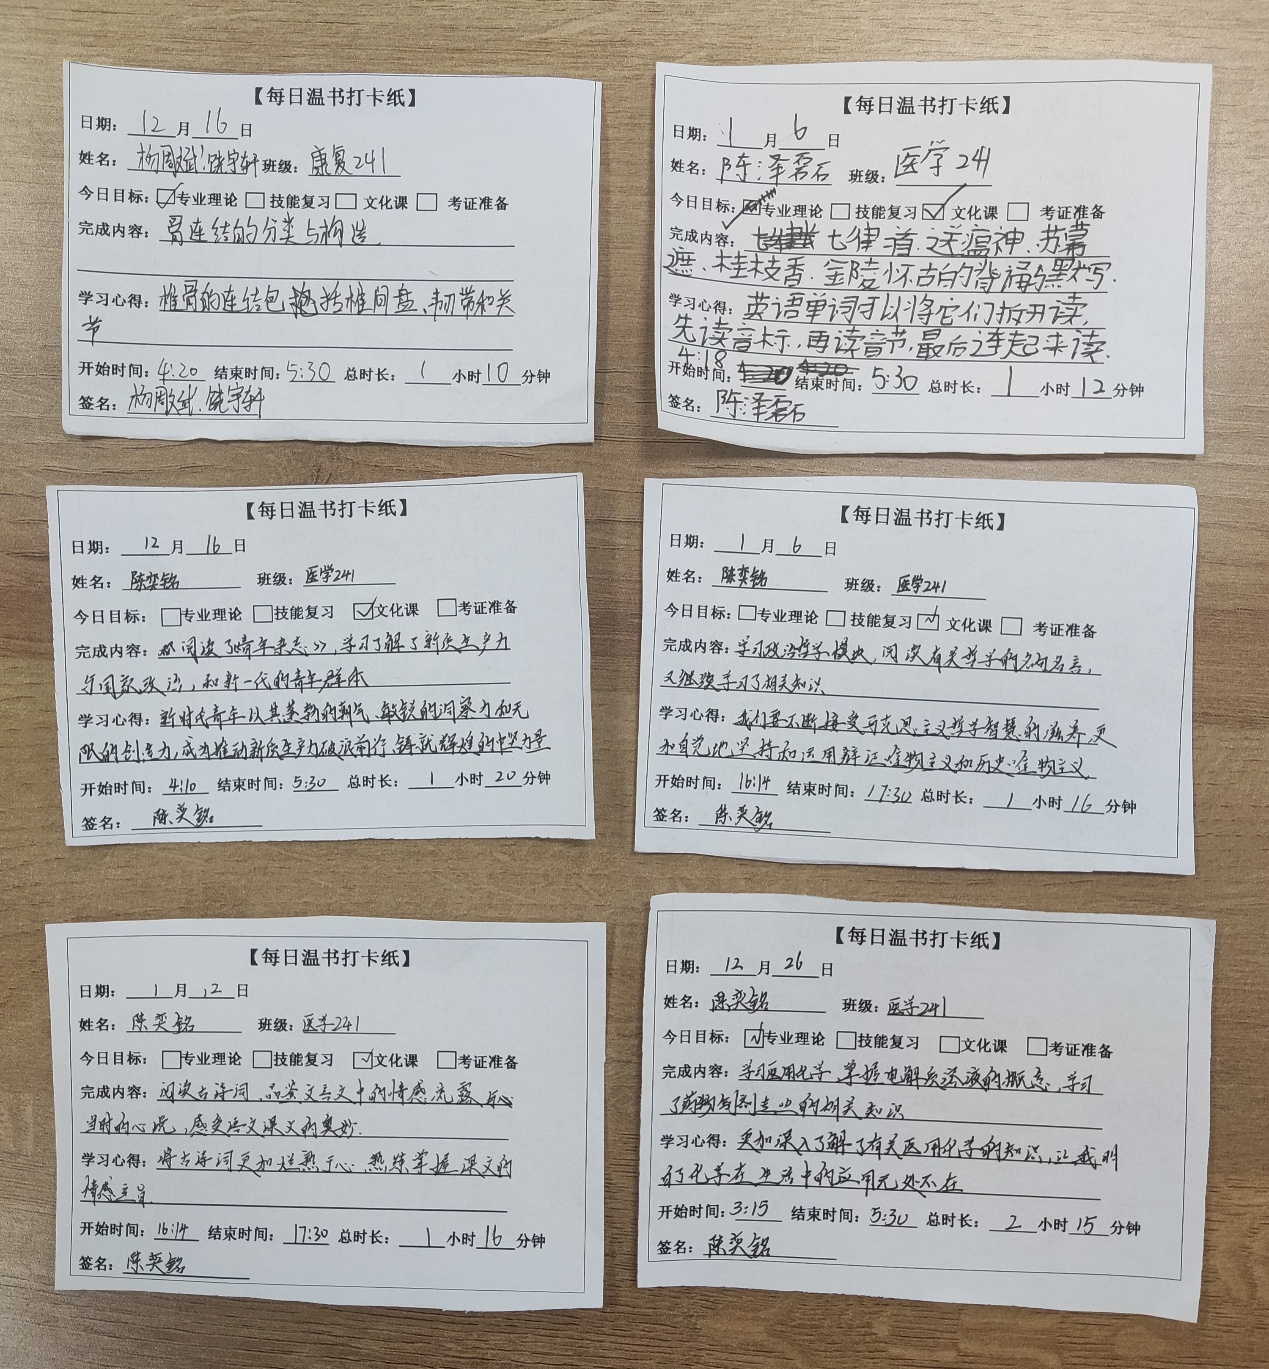 【每日温书打卡纸】
日期: 12 月 16 日
姓名: 杨周斌、饶宇轩 班级: 康复241
今日目标: ☑专业理论 □技能复习 □文化课 □考证准备
完成内容: 骨连结的分类与构造
学习心得: 椎骨的连结包括椎间盘、韧带和关
节
开始时间: 4:20 结束时间: 5:30 总时长: 1 小时 10 分钟
签名: 饶宇轩
【每日温书打卡纸】
日期: 1 月 6 日
姓名: 陈泽磊石 班级: 医学241
今日目标: 专业理论 □技能复习 ☑文化课 □考证准备
完成内容: 七律二首·送瘟神、苏幕
遮、桂枝香·金陵怀古的背诵与默写.
学习心得: 英语单词可以将它们拆开读,
先读音标,再读音节,最后连起来读.
4:18
开始时间: 结束时间: 5:30 总时长: 1 小时 12 分钟
签名: 陈泽磊石
【每日温书打卡纸】
日期: 12 月 16 日
姓名: 陈奕铭 班级: 医学241
今日目标: □专业理论 □技能复习 ☑文化课 □考证准备
完成内容: 阅读《青年杂志》,学习了解了新质生产力
与国家政治,和新一代的青年群体
学习心得: 新时代青年以其蓬勃的朝气、敏锐的洞察力和无
限的创造力,成为推动新质生产力破浪前行,铸就辉煌的中坚力量
开始时间: 4:10 结束时间: 5:30 总时长: 1 小时 20 分钟
签名: 陈奕铭
【每日温书打卡纸】
日期: 1 月 6 日
姓名: 陈奕铭 班级: 医学241
今日目标: □专业理论 □技能复习 ☑文化课 □考证准备
完成内容: 学习政治哲学模块,阅读有关哲学的名句名言,
又继续学习了相关知识
学习心得: 我们要不断接受马克思主义哲学智慧的滋养,更
加自觉地坚持和运用辩证唯物主义和历史唯物主义
开始时间: 16:14 结束时间: 17:30 总时长: 1 小时 16 分钟
签名: 陈奕铭
【每日温书打卡纸】
日期: 1 月 12 日
姓名: 陈奕铭 班级: 医学241
今日目标: □专业理论 □技能复习 ☑文化课 □考证准备
完成内容: 阅读古诗词,品鉴文言文中的情感流露与
当时的心境,感受语文课文的奥妙.
学习心得: 将古诗词更加烂熟于心,熟练掌握课文的
情感主旨
开始时间: 16:14 结束时间: 17:30 总时长: 1 小时 16 分钟
签名: 陈奕铭
【每日温书打卡纸】
日期: 12 月 26 日
姓名: 陈奕铭 班级: 医学241
今日目标: ☑专业理论 □技能复习 □文化课 □考证准备
完成内容: 学习医用化学,掌握电解质溶液的概念,学习
了专业的相关知识
学习心得: 更加深入了解了有关医用化学的知识,让我明
白了化学在生活中的应用无处不在
开始时间: 3:15 结束时间: 5:30 总时长: 2 小时 15 分钟
签名: 陈奕铭